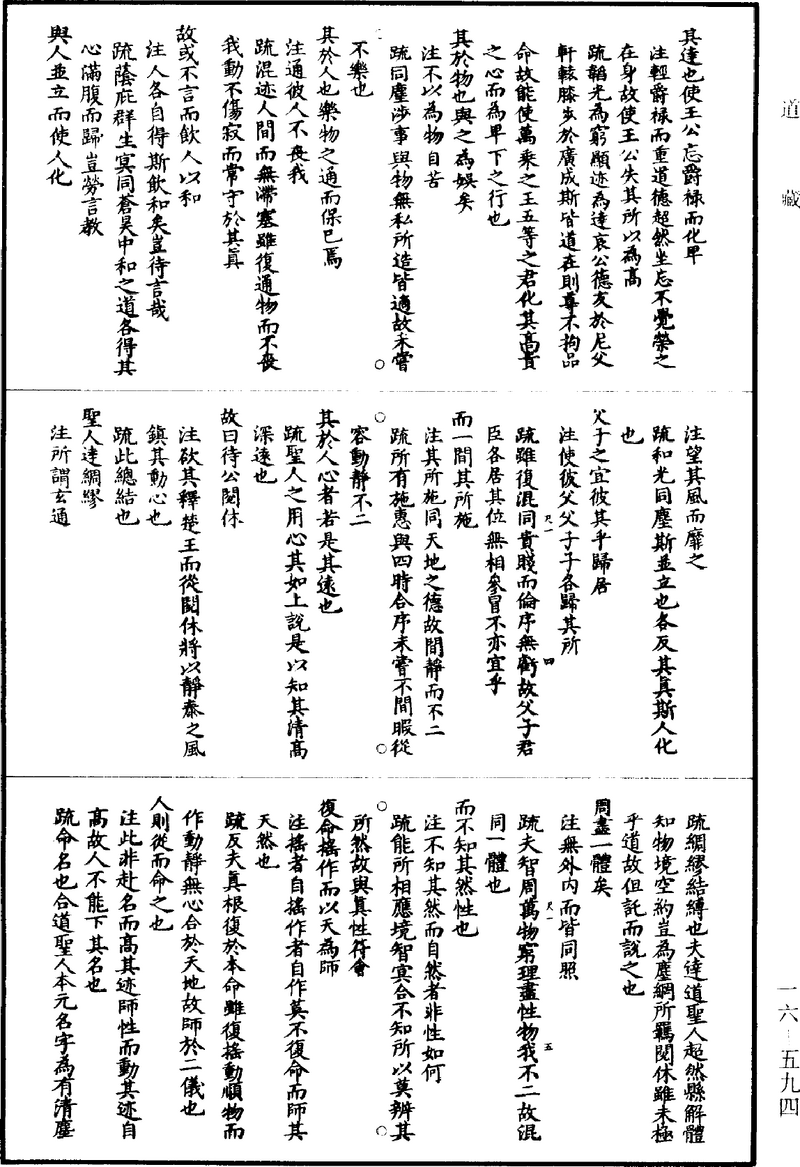 道藏
其達也使王公忘爵禄而化卑
注輕爵禄而重道德超然坐忘不覺榮之
在身故使王公失其所以為高
疏韜光為窮顯迹為達哀公德友於尼父
軒轅膝步於廣成斯皆道在則尊不拘品
命故能使萬乘之王五等之君化其高貴
之心而為卑下之行也
其於物也與之為娛矣
注不以為物自苦
疏同塵涉事與物無私所造皆適故未嘗
不樂也
其於人也樂物之通而保已焉
注通彼人不喪我
疏混迹人間而無滯塞雖復通物而不喪
我動不傷寂而常守於其真
故或不言而飲人以和
注人各自得斯飲和矣豈待言哉
疏蔭庇群生冥同蒼昊中和之道各得其
心滿腹而歸豈勞言教
與人並立而使人化
注望其風而靡之
疏和光同塵斯並立也各反其真斯人化
也
父子之宜彼其乎歸居
注使彼父父子子各歸其所
疏雖復混同貴賤而倫序無虧故父子君
臣各居其位無相參冒不亦宜乎
而一間其所施
注其所施同天地之德故間靜而不二
疏所有施惠與四時合序未嘗不間暇從
容動靜不二
其於人心者若是其遠也
疏聖人之用心其如上說是以知其清高
深遠也
故曰待公閱休
注欲其釋楚王而從閱休將以靜泰之風
鎮其動心也
疏此總結也
聖人達綢繆
注所謂玄通
疏綢繆結縛也夫達道聖人超然縣解體
知物境空約豈為塵網所羈閱休雖未極
乎道故但託而說之也
周盡一體矣
注無外内而皆同照
疏夫智周萬物窮理盡性物我不二故混
同一體也
而不知其然性也
注不知其然而自然者非性如何
疏能所相應境智冥合不知所以莫辨其
所然故與真性符會
復命搖作而以天為師
注搖者自搖作者自作莫不復命而師其
天然也
疏反夫真根復於本命雖復搖動順物而
作動靜無心合於天地故師於二儀也
人則從而命之也
注此非赴名而高其迹師性而動其迹自
高故人不能下其名也
疏命名也合道聖人本元名字為有清塵
一六—五九四